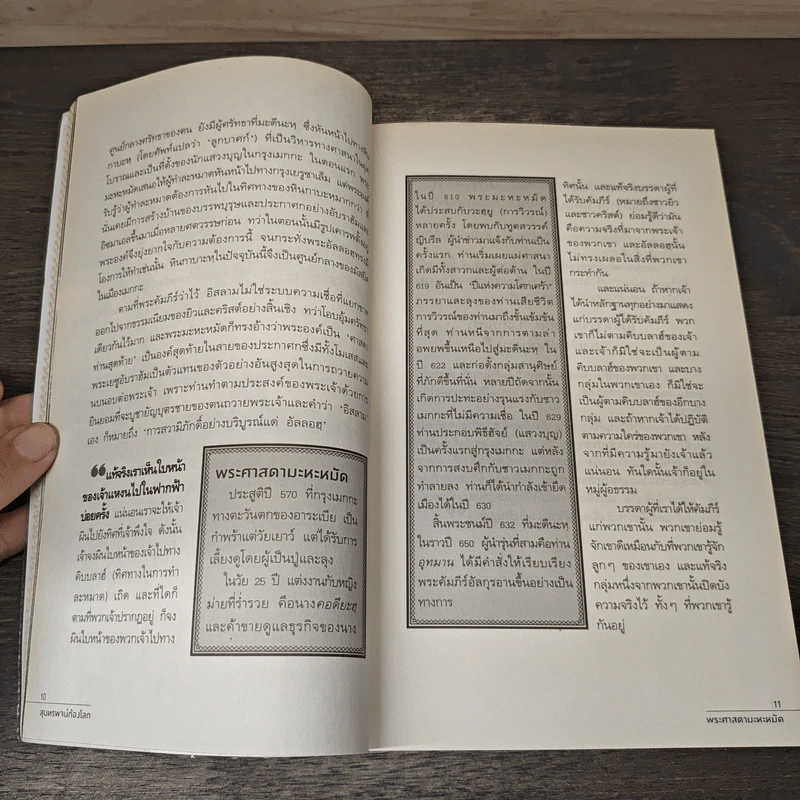 ศูนย์กลางศรัทธาของตน ยังมีผู้ศรัทธาที่มะดีนะฮฺ ซึ่งหันหน้าไปทางหิน
กาบะฮฺ (โดยศัพท์แปลว่า 'ลูกบาศก์') ที่เป็นวิหารทางศาสนาในยุค
โบราณและเป็นที่ตั้งของนักแสวงบุญในกรุงเมกกะ ในตอนแรก พระ
มะหะหมัดเสนอให้ผู้ทำละหมาดหันหน้าไปทางกรุงเยรูซาเล็ม แต่พระองค์
รับรู้ว่าผู้ทำละหมาดต้องการหันไปในทิศทางของหินกาบะฮฺมากกว่า ที่
นั่นเคยมีการสร้างบ้านของบรรพบุรุษและประกาศกอย่างอับราฮัมและ
อิชมาเอลขึ้นมาเมื่อหลายศตวรรษก่อน ทว่าในตอนนั้นมีรูปเคารพตั้งอยู่
พระองค์จึงยุ่งยากใจกับความต้องการนี้ จนกระทั่งพระอัลลอฮฺทรงมี
โองการให้ทำเช่นนั้น หินกาบะฮฺในปัจจุบันนี้จึงเป็นศูนย์กลางของมัสยิด
ในเมืองเมกกะ
ตามที่พระคัมภีร์ว่าไว้ อิสลามไม่ใช่ระบบความเชื่อที่แยกขาด
ออกไปจากธรรมเนียมของยิวและคริสต์อย่างสิ้นเชิง ทว่าโอบอุ้มศรัทธา
เดียวกันไว้มาก และพระมะหะหมัดก็ทรงอ้างว่าพระองค์เป็น 'ศาสดา
ท่านสุดท้าย' เป็นองค์สุดท้ายในสายของประกาศกซึ่งมีทั้งโมเสสและ
พระเยซูอับราฮัมเป็นตัวแทนของตัวอย่างอันสูงสุดในการถวายความ
นบนอบต่อพระเจ้า เพราะท่านทำตามประสงค์ของพระเจ้าด้วยการ
ยินยอมที่จะบูชายัญบุตรชายของตนถวายพระเจ้าและคำว่า 'อิสลาม'
เอง ก็หมายถึง "การสวามิภักดิ์อย่างบริบูรณ์แด่ อัลลอฮฺ"
"แท้จริงเราเห็นใบหน้า
ของเจ้าแหงนไปในฟากฟ้า
บ่อยครั้ง แน่นอนเราจะให้เจ้า
ผินไปยังทิศที่เจ้าพึงใจ ดังนั้น
เจ้าจงผินใบหน้าของเจ้าไปทาง
คิบบลาฮ์ (ทิศทางในการทำ
ละหมาด) เถิด และที่ใดก็
ตามที่พวกเจ้าปรากฏอยู่ ก็จง
ผินใบหน้าของพวกเจ้าไปทาง
พระศาสดามะหะหมัด
ประสูติปี 570 ที่กรุงเมกกะ
ทางตะวันตกของอาระเบีย เป็น
กำพร้าแต่วัยเยาว์ แต่ได้รับการ
เลี้ยงดูโดยผู้เป็นปู่และลุง
ในวัย 25 ปี แต่งงานกับหญิง
ม่ายที่ร่ำรวย คือนางคอดียะฮฺ
และค้าขายดูแลธุรกิจของนาง
10
สุนทรพจน์ก้องโลก
ในปี 610 พระมะหะหมัด
ได้ประสบกับวะฮฺยู (การวิวรณ์)
หลายครั้ง โดยพบกับทูตสวรรค์
ญิบรีล ผู้นำข่าวมาแจ้งกับท่านเป็น
ครั้งแรก ท่านเริ่มเผยแผ่ศาสนา
เกิดมีทั้งสาวกและผู้ต่อต้าน ในปี
619 อันเป็น 'ปีแห่งความโศกเศร้า'
ภรรยาและลุงของท่านเสียชีวิต
การวิวรณ์ของท่านมาถึงขั้นเข้มข้น
ที่สุด ท่านหนีจากการตามล่า
อพยพขึ้นเหนือไปสู่มะดีนะฮฺ ใน
ปี 622 และก่อตั้งกลุ่มสานุศิษย์
ที่ภักดีขึ้นที่นั่น หลายปีถัดจากนั้น
เกิดการปะทะอย่างรุนแรงกับชาว
เมกกะที่ไม่มีความเชื่อ ในปี 629
ท่านประกอบพิธีฮัจย์ (แสวงบุญ)
เป็นครั้งแรกสู่กรุงเมกกะ แต่หลัง
จากการสงบศึกกับชาวเมกกะถูก
ทำลายลง ท่านก็ได้นำกำลังเข้ายึด
เมืองได้ในปี 630
สิ้นพระชนม์ปี 632 ที่มะดีนะฮฺ
ในราวปี 650 ผู้นำรุ่นที่สามคือท่าน
อุทมาน ได้มีคำสั่งให้เรียบเรียง
พระคัมภีร์อัลกุรอานขึ้นอย่างเป็น
ทางการ
ทิศนั้น และแท้จริงบรรดาผู้ที่
ได้รับคัมภีร์ (หมายถึงชาวยิว
และชาวคริสต์) ย่อมรู้ดีว่ามัน
คือความจริงที่มาจากพระเจ้า
ของพวกเขา และอัลลอฮฺนั้น
ไม่ทรงเผลอในสิ่งที่พวกเขา
กระทำกัน
และแน่นอน ถ้าหากเจ้า
ได้นำหลักฐานทุกอย่างมาแสดง
แก่บรรดาผู้ได้รับคัมภีร์ พวก
เขาก็ไม่ตามคิบบลาฮ์ของเจ้า
และเจ้าก็มิใช่จะเป็นผู้ตาม
คิบบลาฮ์ของพวกเขา และบาง
กลุ่มในพวกเขาเอง ก็มิใช่จะ
เป็นผู้ตามคิบบลาฮ์ของอีกบาง
กลุ่ม และถ้าหากเจ้าได้ปฏิบัติ
ตามความใคร่ของพวกเขา หลัง
จากที่มีความรู้มายังเจ้าแล้ว
แน่นอน ทันใดนั้นเจ้าก็อยู่ใน
หมู่ผู้อธรรม
บรรดาผู้ที่เราได้ให้คัมภีร์
แก่พวกเขานั้น พวกเขาย่อมรู้
จักเขาดีเหมือนกับที่พวกเขารู้จัก
ลูกๆ ของเขาเอง และแท้จริง
กลุ่มหนึ่งจากพวกเขานั้นปิดบัง
ความจริงไว้ ทั้งๆ ที่พวกเขารู้
กันอยู่
11
พระศาสดามะหะหมัด